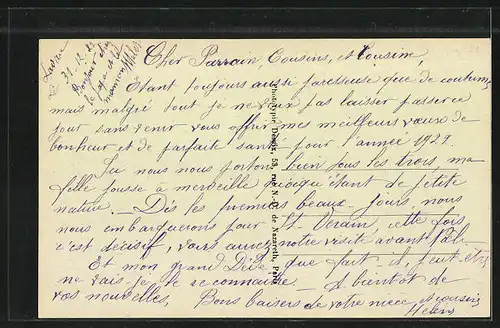 31.12.28
Bonjour
Cher Parrain, Cousins, et Cousine,
Étant toujours aussi paresseuse que de coutume,
mais malgré tout je ne veux pas laisser passer ce
jour sans venir vous offrir mes meilleurs vœux de
bonheur et de parfaite santé pour l'année 1929.
Ici nous nous portons bien tous les trois, ma
fille pousse à merveille quoique étant de petite
nature. Dès les premiers beaux jours nous
nous embarquerons pour St. cette fois
c'est décisif, vous aurez notre visite avant
Et mon grand Dédé, que fait-il peut-être
ne vais je le reconnaître. A bientôt de
vos nouvelles. Bons baisers de votre nièce et cousine
Phototypie Desaix, 53, rue N.-D. de Nazareth, Paris